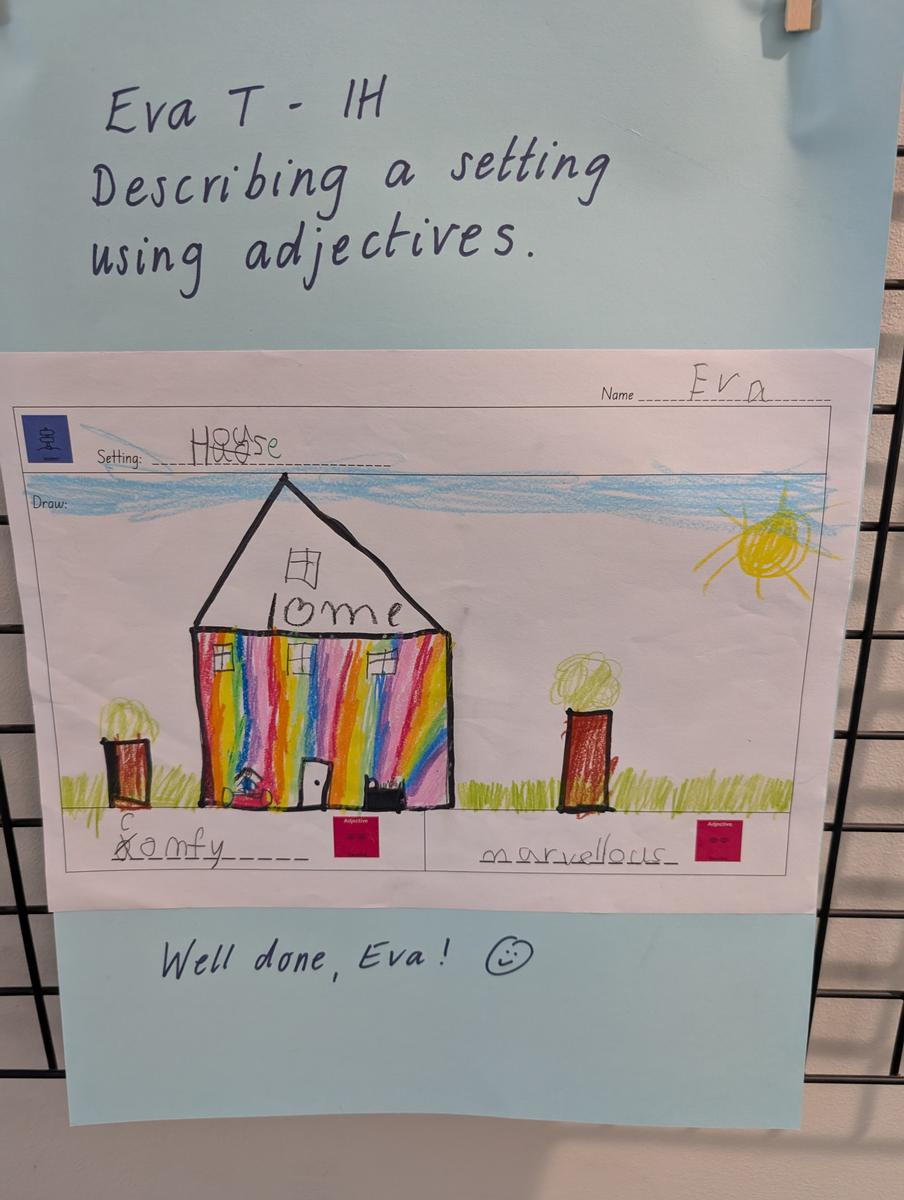 Eva T - 1H
Describing a setting
using adjectives.
Name Eva
Setting: House
Draw:
home
comfy
Adjective
marvellous
Adjective
Well done, Eva!